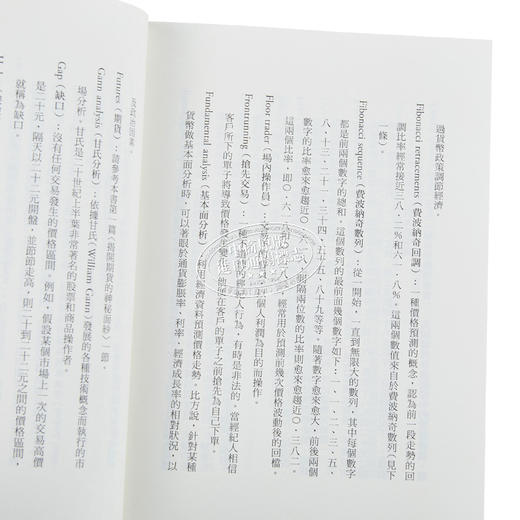 過貨幣政策調節經濟。
Fibonacci retracements(費波納奇回調):一種價格預測的概念,認為前一段走勢的回
調比率經常接近三八.二%和六一.八%。這兩個數值來自於費波納奇數列(見下
一條)。
Fibonacci sequence(費波納奇數列):從一開始,一直到無限大的數列,其中每個數字
都是前兩個數字的總和。這個數列的最前面幾個數字如下:一、一、二、三、五、
八、十三、二十一、三十四、五十五、八十九等等。隨著數字愈來愈大,前後兩個
數字的比率愈來愈趨近○.六一八,間隔兩位數的比率則愈來愈趨近○.三八二。
這兩個比率,即○.六一八 經常用於預測前幾次價格波動後的回檔。
Floor trader(場內操作員):交易 個人利潤為目的而操作。
Frontrunning(搶先交易):一種不道德的經紀人行為,有時是非法的。當經紀人相信
客戶所下的單子將導致價格發生變 他趕在客戶的單子之前搶先為自己下單。
Fundamental analysis(基本面分析):利用經濟資料預測價格走勢。比方說,針對某種
貨幣做基本面分析時,可以著眼於通貨膨脹率、利率、經濟成長率的相對狀況,以
及政治因素。
Futures(期貨):請參考本書第一篇〈揭開期貨的神秘面紗〉一節。
Gann analysis(甘氏分析):依據甘氏(William Gann)發展的各種技術概念而執行的市
場分析。甘氏是二十世紀上半葉非常著名的股票和商品操作者。
Gap(缺口):沒有任何交易發生的價格區間。例如,假設某個市場上一次的交易高價
是二十元,隔天以二十二元開盤,並節節走高,則二十到二十二元之間的價格區間,
就稱為缺口。